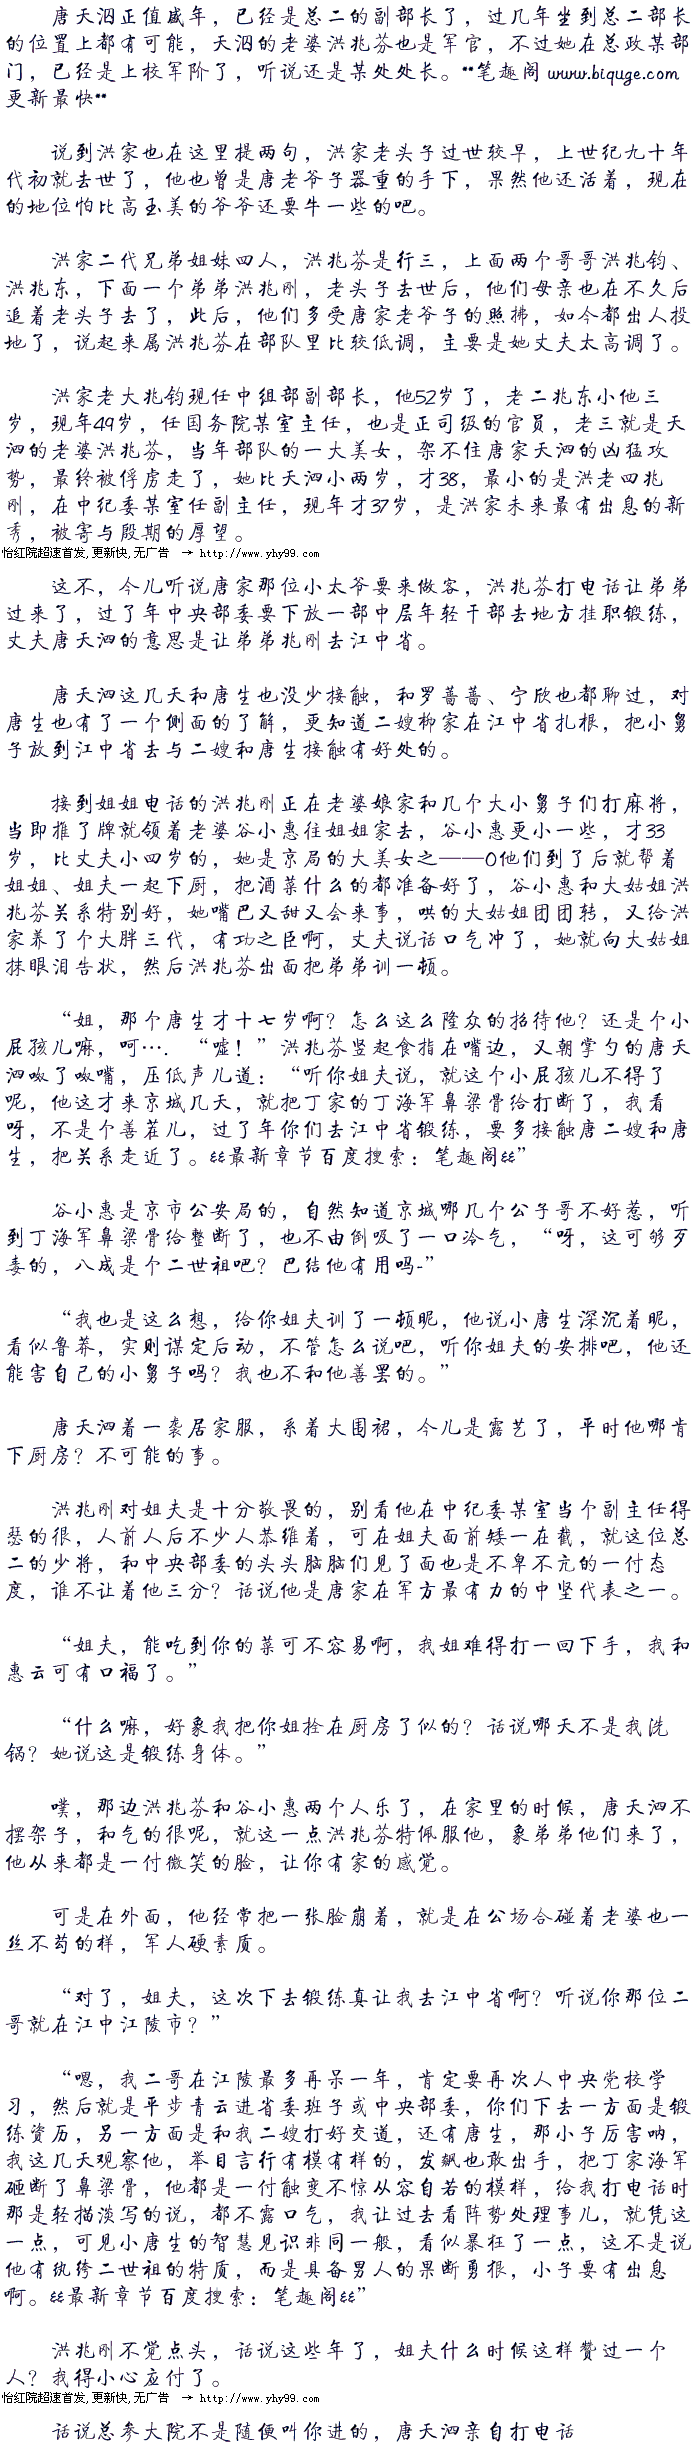 唐天泗正值盛年，已经是总二的副部长了，过几年坐到总二部长
的位置上都有可能，天泗的老婆洪兆芬也是军官，不过她在总政某部
门，已经是上校军阶了，听说还是某处处长。**笔趣阁 www.biquge.com
更新最快**
说到洪家也在这里提两句，洪家老头子过世较早，上世纪九十年
代初就去世了，他也曾是唐老爷子器重的手下，果然他还活着，现在
的地位怕比高玉美的爷爷还要牛一些的吧。
洪家二代兄弟姐妹四人，洪兆芬是行三，上面两个哥哥洪兆钧、
洪兆东，下面一个弟弟洪兆刚，老头子去世后，他们母亲也在不久后
追着老头子去了，此后，他们多受唐家老爷子的照拂，如今都出人投
地了，说起来属洪兆芬在部队里比较低调，主要是她丈夫太高调了。
洪家老大兆钧现任中组部副部长，他52岁了，老二兆东小他三
岁，现年49岁，任国务院某室主任，也是正司级的官员，老三就是天
泗的老婆洪兆芬，当年部队的一大美女，架不住唐家天泗的凶猛攻
势，最终被俘虏走了，她比天泗小两岁，才38，最小的是洪老四兆
刚，在中纪委某室任副主任，现年才37岁，是洪家未来最有出息的新
秀，被寄与殷期的厚望。
怡红院超速首发,更新快,无广告 → http://www.yhy99.com
这不，今儿听说唐家那位小太爷要来做客，洪兆芬打电话让弟弟
过来了，过了年中央部委要下放一部中层年轻干部去地方挂职锻练，
丈夫唐天泗的意思是让弟弟兆刚去江中省。
唐天泗这几天和唐生也没少接触，和罗蔷蔷、宁欣也都聊过，对
唐生也有了一个侧面的了解，更知道二嫂柳家在江中省扎根，把小舅
子放到江中省去与二嫂和唐生接触有好处的。
接到姐姐电话的洪兆刚正在老婆娘家和几个大小舅子们打麻将，
当即推了牌就领着老婆谷小惠往姐姐家去，谷小惠更小一些，才33
岁，比丈夫小四岁的，她是京局的大美女之——0他们到了后就帮着
姐姐、姐夫一起下厨，把酒菜什么的都准备好了，谷小惠和大姑姐洪
兆芬关系特别好，她嘴巴又甜又会来事，哄的大姑姐团团转，又给洪
家养了个大胖三代，有功之臣啊，丈夫说话口气冲了，她就向大姑姐
抹眼泪告状，然后洪兆芬出面把弟弟训一顿。
“姐，那个唐生才十七岁啊？怎么这么隆众的招待他？还是个小
屁孩儿嘛，呵…．“嘘！”洪兆芬竖起食指在嘴边，又朝掌勺的唐天
泗呶了呶嘴，压低声儿道：“听你姐夫说，就这个小屁孩儿不得了
呢，他这才来京城几天，就把丁家的丁海军鼻梁骨给打断了，我看
呀，不是个善茬儿，过了年你们去江中省锻练，要多接触唐二嫂和唐
生，把关系走近了。&&最新章节百度搜索：笔趣阁&&”
谷小惠是京市公安局的，自然知道京城哪几个公子哥不好惹，听
到丁海军鼻梁骨给整断了，也不由倒吸了一口冷气，“呀，这可够歹
毒的，八成是个二世祖吧？巴结他有用吗-”
“我也是这么想，给你姐夫训了一顿昵，他说小唐生深沉着昵，
看似鲁莽，实则谋定后动，不管怎么说吧，听你姐夫的安排吧，他还
能害自己的小舅子吗？我也不和他善罢的。”
唐天泗着一袭居家服，系着大围裙，今儿是露艺了，平时他哪肯
下厨房？不可能的事。
洪兆刚对姐夫是十分敬畏的，别看他在中纪委某室当个副主任得
瑟的很，人前人后不少人恭维着，可在姐夫面前矮一在截，就这位总
二的少将，和中央部委的头头脑脑们见了面也是不卑不亢的一付态
度，谁不让着他三分？话说他是唐家在军方最有力的中坚代表之一。
“姐夫，能吃到你的菜可不容易啊，我姐难得打一回下手，我和
惠云可有口福了。”
“什么嘛，好象我把你姐拴在厨房了似的？话说哪天不是我洗
锅？她说这是锻练身体。”
噗，那边洪兆芬和谷小惠两个人乐了，在家里的时候，唐天泗不
摆架子，和气的很呢，就这一点洪兆芬特佩服他，象弟弟他们来了，
他从来都是一付微笑的脸，让你有家的感觉。
可是在外面，他经常把一张脸崩着，就是在公场合碰着老婆也一
丝不苟的样，军人硬素质。
“对了，姐夫，这次下去锻练真让我去江中省啊？听说你那位二
哥就在江中江陵市？”
“嗯，我二哥在江陵最多再呆一年，肯定要再次人中央党校学
习，然后就是平步青云进省委班子或中央部委，你们下去一方面是锻
练资历，另一方面是和我二嫂打好交道，还有唐生，那小子厉害呐，
我这几天观察他，举目言行有模有样的，发飙也敢出手，把丁家海军
砸断了鼻梁骨，他都是一付触变不惊从容自若的模样，给我打电话时
那是轻描淡写的说，都不露口气，我让过去看阵势处理事儿，就凭这
一点，可见小唐生的智慧见识非同一般，看似暴枉了一点，这不是说
他有纨绔二世祖的特质，而是具备男人的果断勇狠，小子要有出息
啊。&&最新章节百度搜索：笔趣阁&&”
洪兆刚不觉点头，话说这些年了，姐夫什么时候这样赞过一个
人？我得小心应付了。
怡红院超速首发,更新快,无广告 → http://www.yhy99.com
话说总参大院不是随便叫你进的，唐天泗亲自打电话